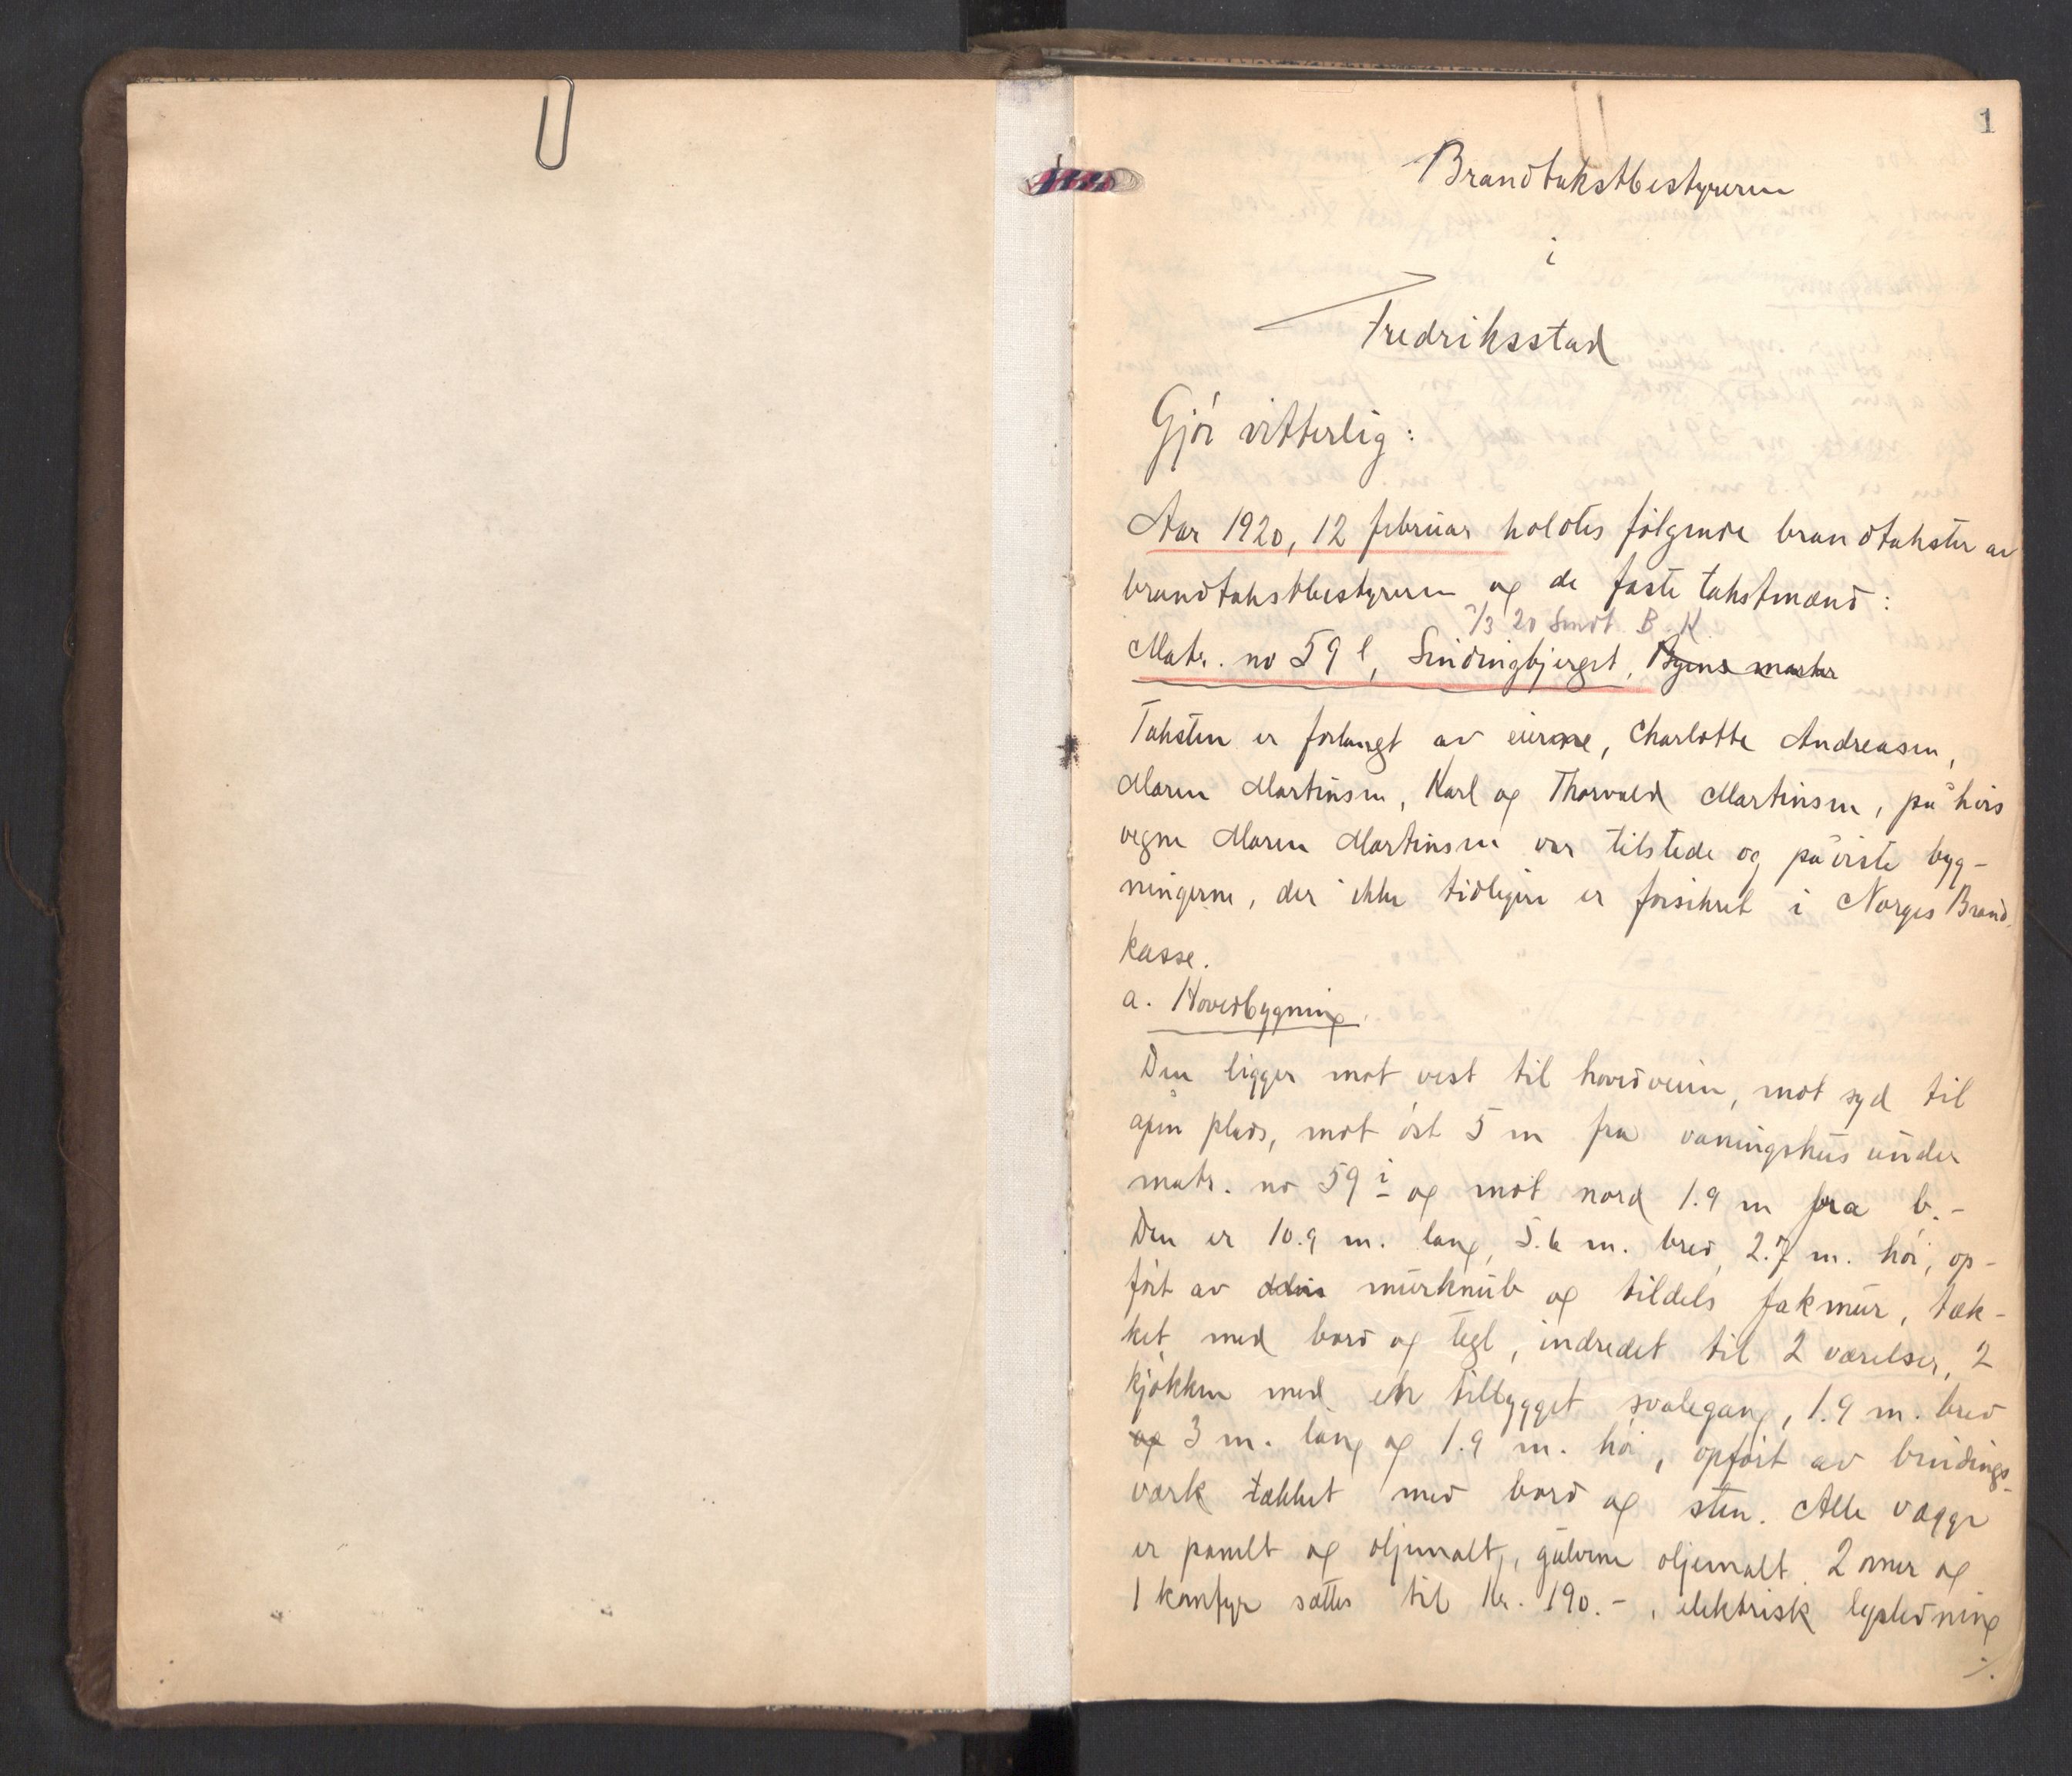 1
Brandtakstbestyreren
i
Fredriksstad
Gjör vitterlig:
Aar 1920, 12 februar holdtes følgende brandtakster av
brandtakstbestyreren og de faste takstmænd:
7/3 20 Sendt B. K.
Matr. no 59 l, Sindingbjerget, Byens marker
Taksten er forlangt av eierne, Charlotte Andreasen,
Maren Martinsen, Karl og Thorvald Martinsen, på hvis
vegne Maren Martinsen var tilstede og påviste byg-
ningerne, der ikke tidligere er forsikret i Norges Brand
kasse.
a. Hovedbygning.
Den ligger mot vest til hovedveien, mot syd til
åpen plads, mot öst 5 m fra våningshus under
matr. no 59 i og mot nord 1.9 m fra b.-
Den er 10.9 m. lang, 5.6 m. bred, 2.7 m. høi, op-
ført av murknub og tildels fakmur, tæk-
ket med bord og tegl, indredet til 2 værelser, 2
kjøkken med en tilbygget svalegang, 1.9 m. bred
og 3 m. lang og 1.9 m. høi, opført av bindings-
værk tækket med bord og sten. Alle vægge
er panelt og oljemalt, gulvene oljemalt. 2 ovner og
1 komfyr sættes til kr. 190.-, elektrisk lysledning
./.